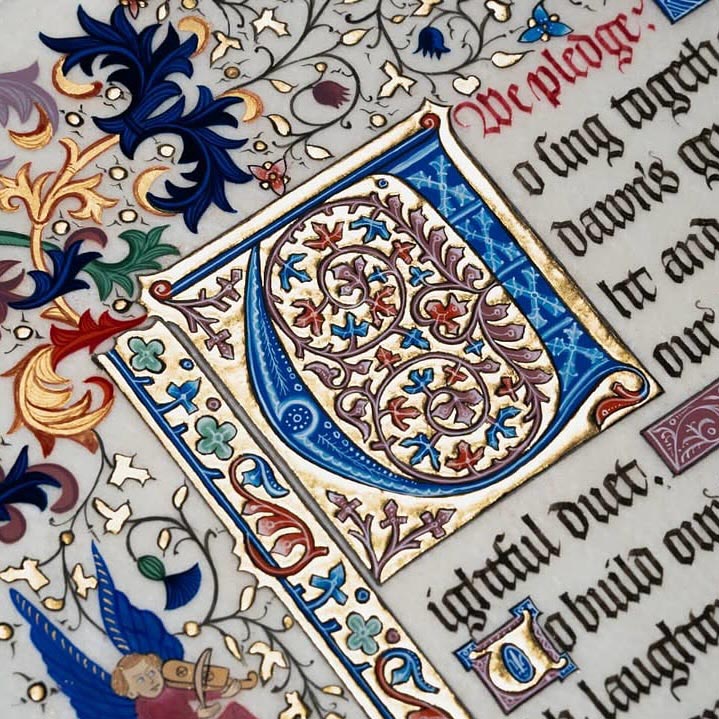 We pledge:
To sing togeth
dawn's ge
ht and
our
ightful duet.
To build our
h laughte